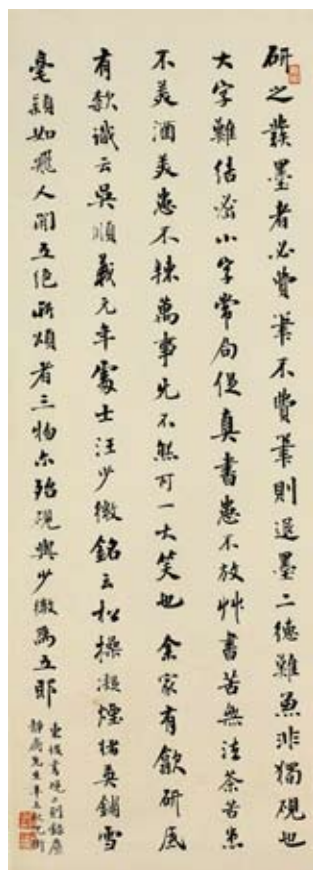 研之發墨者必費筆不費筆則退墨二德難兼非獨硯也
大字難結密小字常局促真書患不放艸書苦無法茶苦患
不美酒美患不辣萬事无不然可一大笑也余家有歙研底
有款識云吳順義元年處士汪少微銘云松操凝煙楮英鋪雪
毫穎如飛人間五絕所頌者三物尒殆硯與少微為五耶
東坡書硯二則錄應
先生